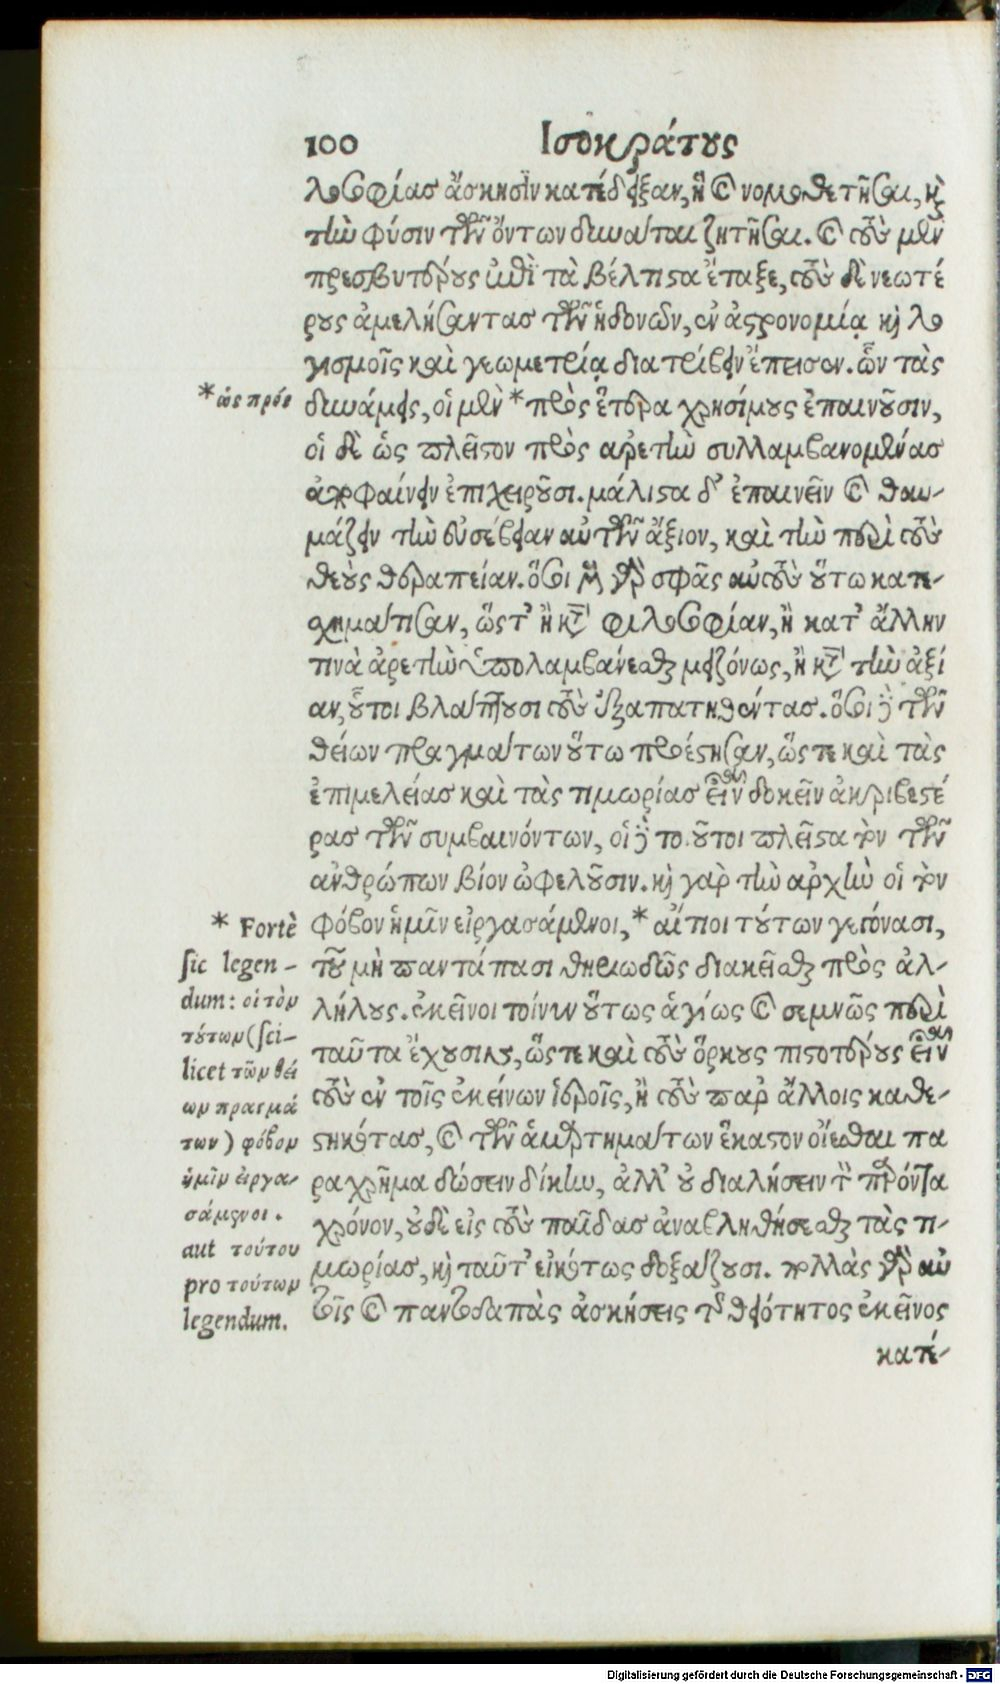 100 Ἰσοκράτους
λοσοφίας ἄσκησιν κατέδειξαν, ἣ καὶ νομοθετῆσαι, καὶ
τὴν φύσιν τῶν ὄντων δύναται ζητῆσαι. καὶ τοὺς μὲν
πρεσβυτέρους ἐπὶ τὰ βέλτιστα ἔταξε, τοὺς δὲ νεωτέ
ρους ἀμελήσαντας τῶν ἡδονῶν, ἐν ἀστρονομίᾳ καὶ λο
γισμοῖς καὶ γεωμετρίᾳ διατρίβειν ἔπεισεν. ὧν τὰς
* ὡς πρὸς
δυνάμεις, οἱ μὲν * πρὸς ἕτερα χρησίμους ἐπαινοῦσιν,
οἱ δὲ ὡς πλεῖστον πρὸς ἀρετὴν συλλαμβανομένας
ἀποφαίνειν ἐπιχειροῦσι. μάλιστα δ' ἐπαινεῖν καὶ θαυ-
μάζειν τὴν εὐσέβειαν αὐτῶν ἄξιον, καὶ τὴν περὶ τοὺς
θεοὺς θεραπείαν. ὅσοι μὲν γὰρ σφᾶς αὐτοὺς οὕτω κατε-
χημάτισαν, ὥστ' ἢ κατὰ φιλοσοφίαν, ἢ κατ' ἄλλην
τινὰ ἀρετὴν ὑπολαμβάνεσθαι μειζόνως, ἢ κατὰ τὴν ἀξί
αν, οὗτοι βλάπτουσι τοὺς ἐξαπατηθέντας. ὅσοι δὲ τῶν
θείων πραγμάτων οὕτω προέστησαν, ὥστε καὶ τὰς
ἐπιμελείας καὶ τὰς τιμωρίας εἶναι δοκεῖν ἀκριβεστέ
ρας τῶν συμβαινόντων, οἱ δὲ το οῦτοι πλεῖστα τὸν τῶν
ἀνθρώπων βίον ὠφελοῦσιν. καὶ γὰρ τὴν ἀρχὴν οἱ τὸν
φόβον ἡμῖν εἰργασάμενοι, * αἴτιοι τούτων γεγόνασι,
τοῦ μὴ παντάπασι θηριωδῶς διακεῖσθαι πρὸς ἀλ-
λήλους. ἐκεῖνοι τοίνυν οὕτως ἁγίως καὶ σεμνῶς περὶ
ταῦτα ἔχουσιν, ὥστε καὶ τοὺς ὅρκους πιστοτέρους εἶναι
τοὺς ἐν τοῖς ἐκείνων ἱεροῖς, ἢ τοὺς παρ' ἄλλοις καθε-
στηκότας, καὶ τῶν ἁμαρτημάτων ἕκαστον οἴεσθαι πα
ραχρῆμα δώσειν δίκην, ἀλλ' οὐ διαλήσειν τὸν παρόντα
χρόνον, οὐδὲ εἰς τοὺς παῖδας ἀναβληθήσεσθαι τὰς τι-
μωρίας, καὶ ταῦτ' εἰκότως δοξάζουσι. πολλὰς γὰρ αὐ
τοῖς καὶ παντοδαπὰς ἀσκήσεις τῆς θειότητος ἐκεῖνος
κατέ-
* Fortè
sic legen-
dum: οἱ τὸν
τούτων (sci-
licet τῶν θεί
ων πραγμά
των) φόβον
ἡμῖν εἰργα-
σάμενοι.
aut τούτου
pro τούτων
legendum.
Digitalisierung gefördert durch die Deutsche Forschungsgemeinschaft - DFG